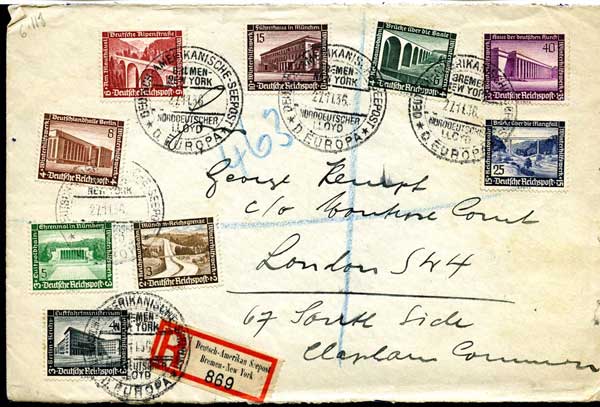 6.113
Deutsche Alpenstraße
6
Deutsche Reichspost
Führerhaus in München
15
Deutsche Reichspost
Brücke über die Saale
6
Deutsche Reichspost
Haus der deutschen Kunst
40
Deutsche Reichspost
DEUTSCH-AMERIKANISCHE-SEEPOST
BREMEN-
NEW YORK
27.11.36
NORDDEUTSCHER
LLOYD
* D. EUROPA *
463
Deutschlandhalle Berlin
8
Deutsche Reichspost
Brücke über die Mangfall
25
Deutsche Reichspost
NEW YORK
27.11.36
Ehrenmal in Nürnberg
Luitpoldhain
5
Deutsche Reichspost
Münch.-Reichsgrenze
3
Deutsche Reichspost
Luftfahrtministerium
4
Deutsche Reichspost
BREMEN-
NEW YORK
NORDDEUTSCHER
LLOYD
D. EUROPA *
George
c/o Montrose Court
London SW4
67 South Side
Clapham Common
R
Deutsch-Amerikan Seepost
Bremen-New York
869